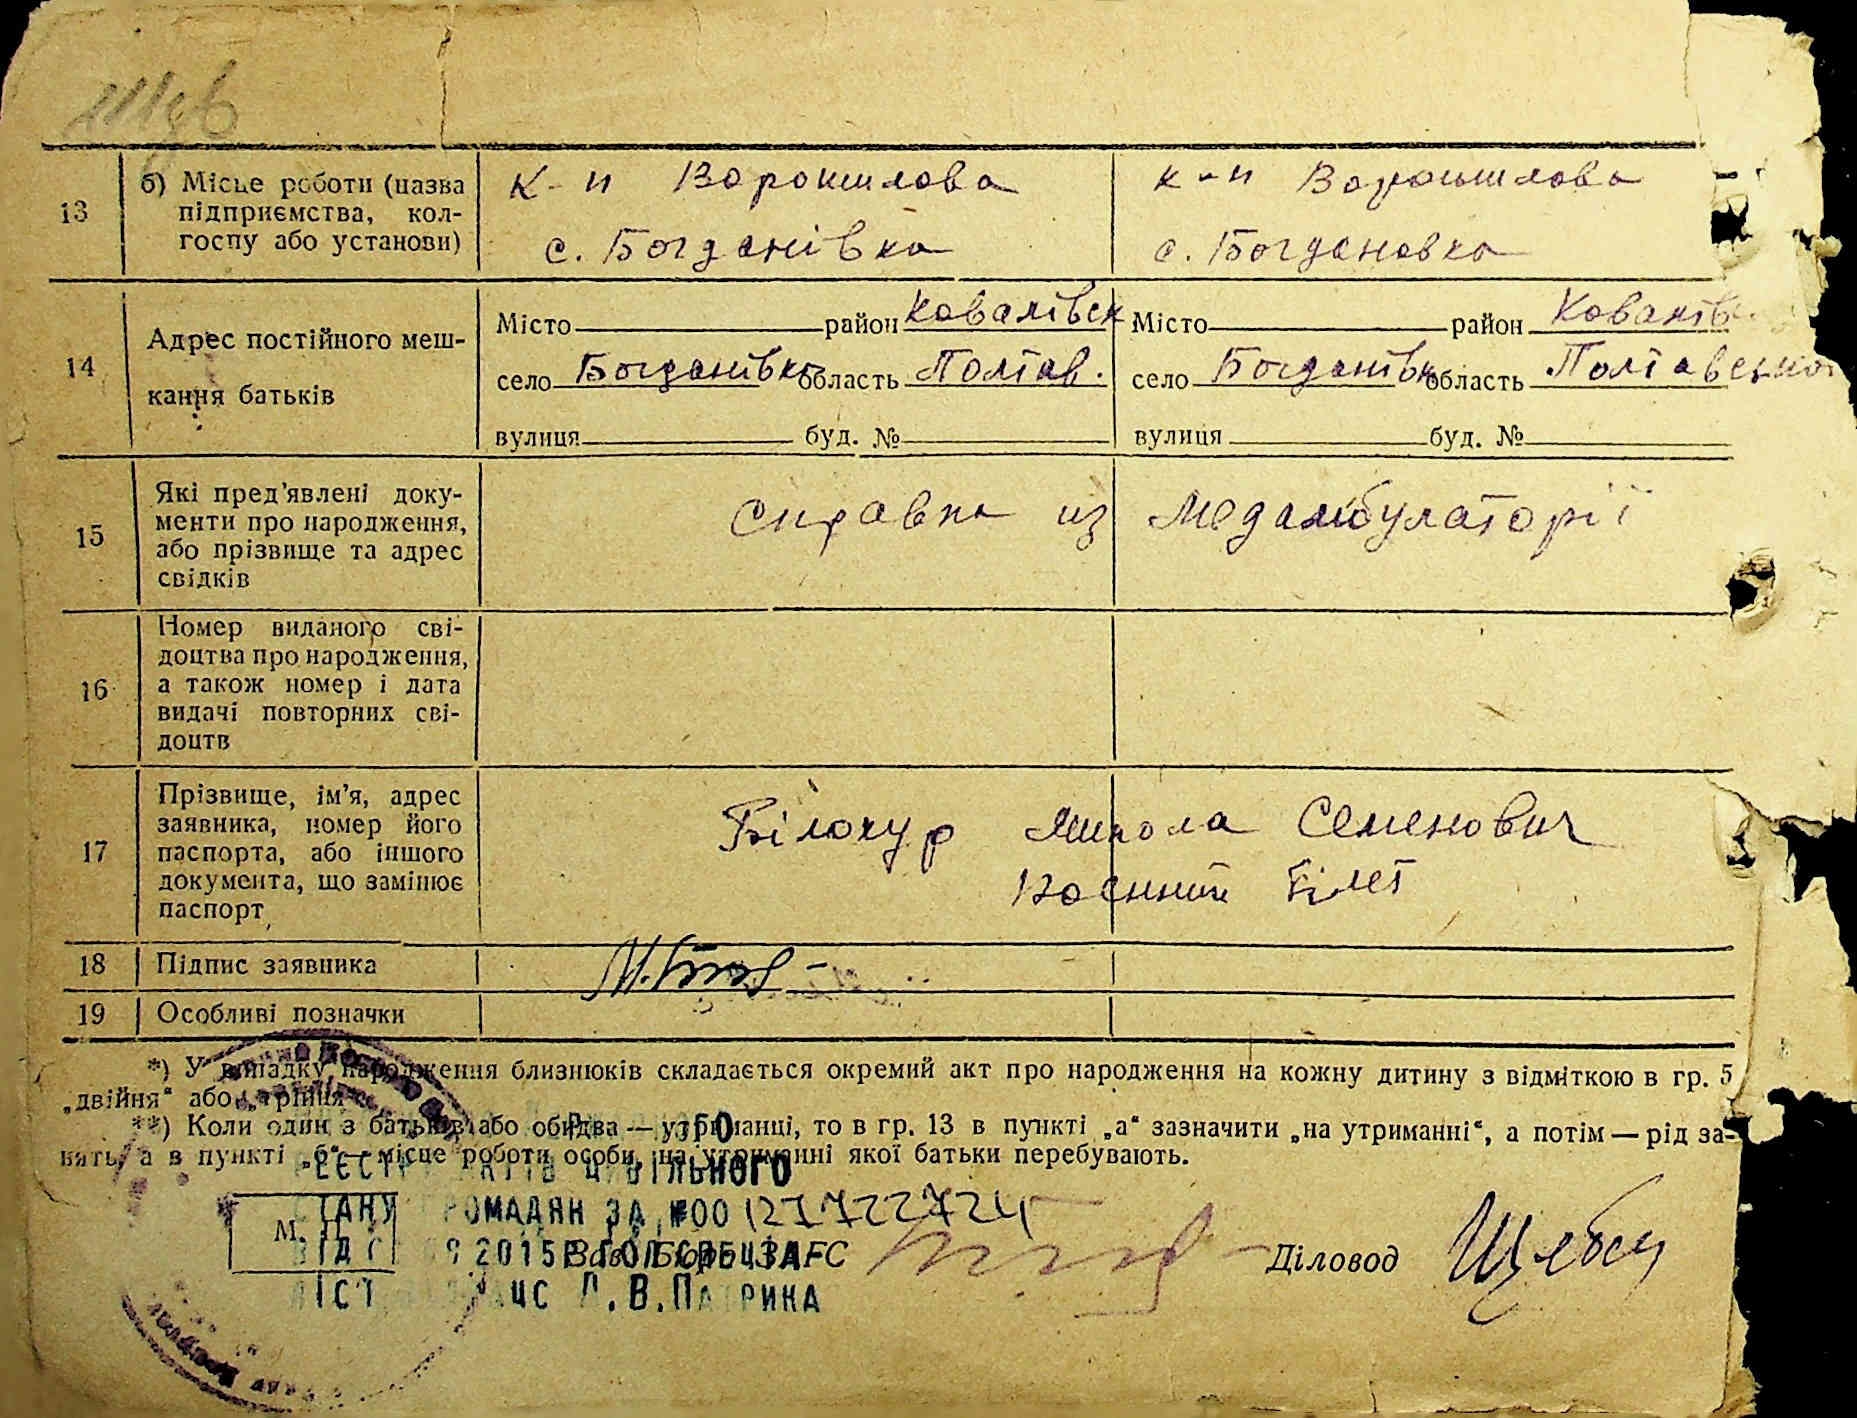 13 б) Місце роботи (назва підприємства, кол-
госпу або установи)
к-п Ворошилова
с. Богданівка
к-п Ворошилова
с. Богдановка
14 Адрес постійного меш-
кання батьків
Місто район Ковалівськ
село Богданівка область Полтав.
вулиця буд. №
Місто район Ковалів
село Богданівка область Полтавсько
вулиця буд. №
15 Які пред'явлені доку-
менти про народження,
або прізвище та адрес
свідків
справка из Медамбулаторії
16 Номер виданого сві-
доцтва про народження,
а також номер і дата
видачі повторних сві-
доцтв
17 Прізвище, ім'я, адрес
заявника, номер його
паспорта, або іншого
документа, що замінює
паспорт
Білокур Микола Семенович
Воєнний білет
18 Підпис заявника
19 Особливі позначки
*) У випадку народження близнюків складається окремий акт про народження на кожну дитину з відміткою в гр. 5
„двійня“ або „трійня“
**) Коли один з батьків або обидва — утриманці, то в гр. 13 в пункті „а“ зазначити „на утриманні“, а потім — рід за-
нять, а в пункті „б“ — місце роботи особи, на утриманні якої батьки перебувають.
ЦИВІЛЬНОГО
СТАНУ ГРОМАДЯН ЗА №00
М. П.
ВІД 2015Р ГОЛ.СПЕЦІА-
ЛІСТ
Зав. Бюро ЗАГС
Діловод